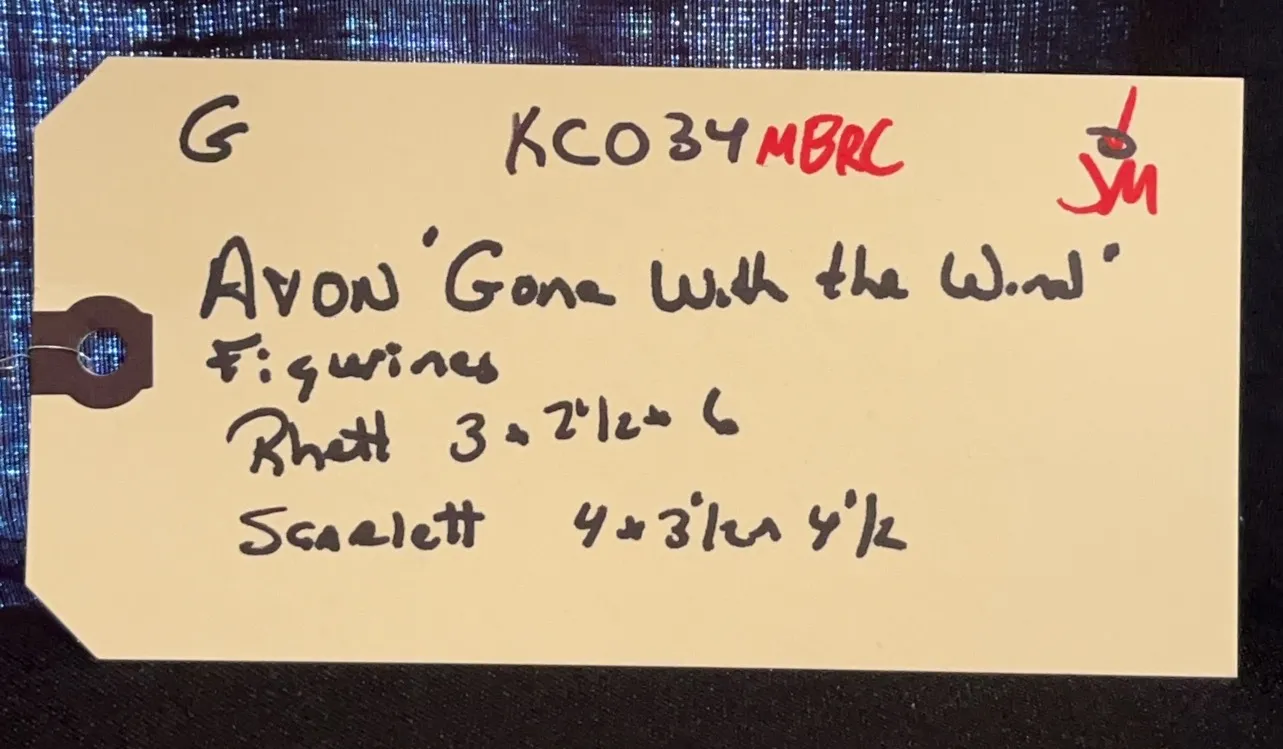 G KCO34 MBRC JM
Avon 'Gone With the Wind'
Figurines
Rhett 3 x 2 1/2 x 6
Scarlett 4 x 3 1/2 x 4 1/2